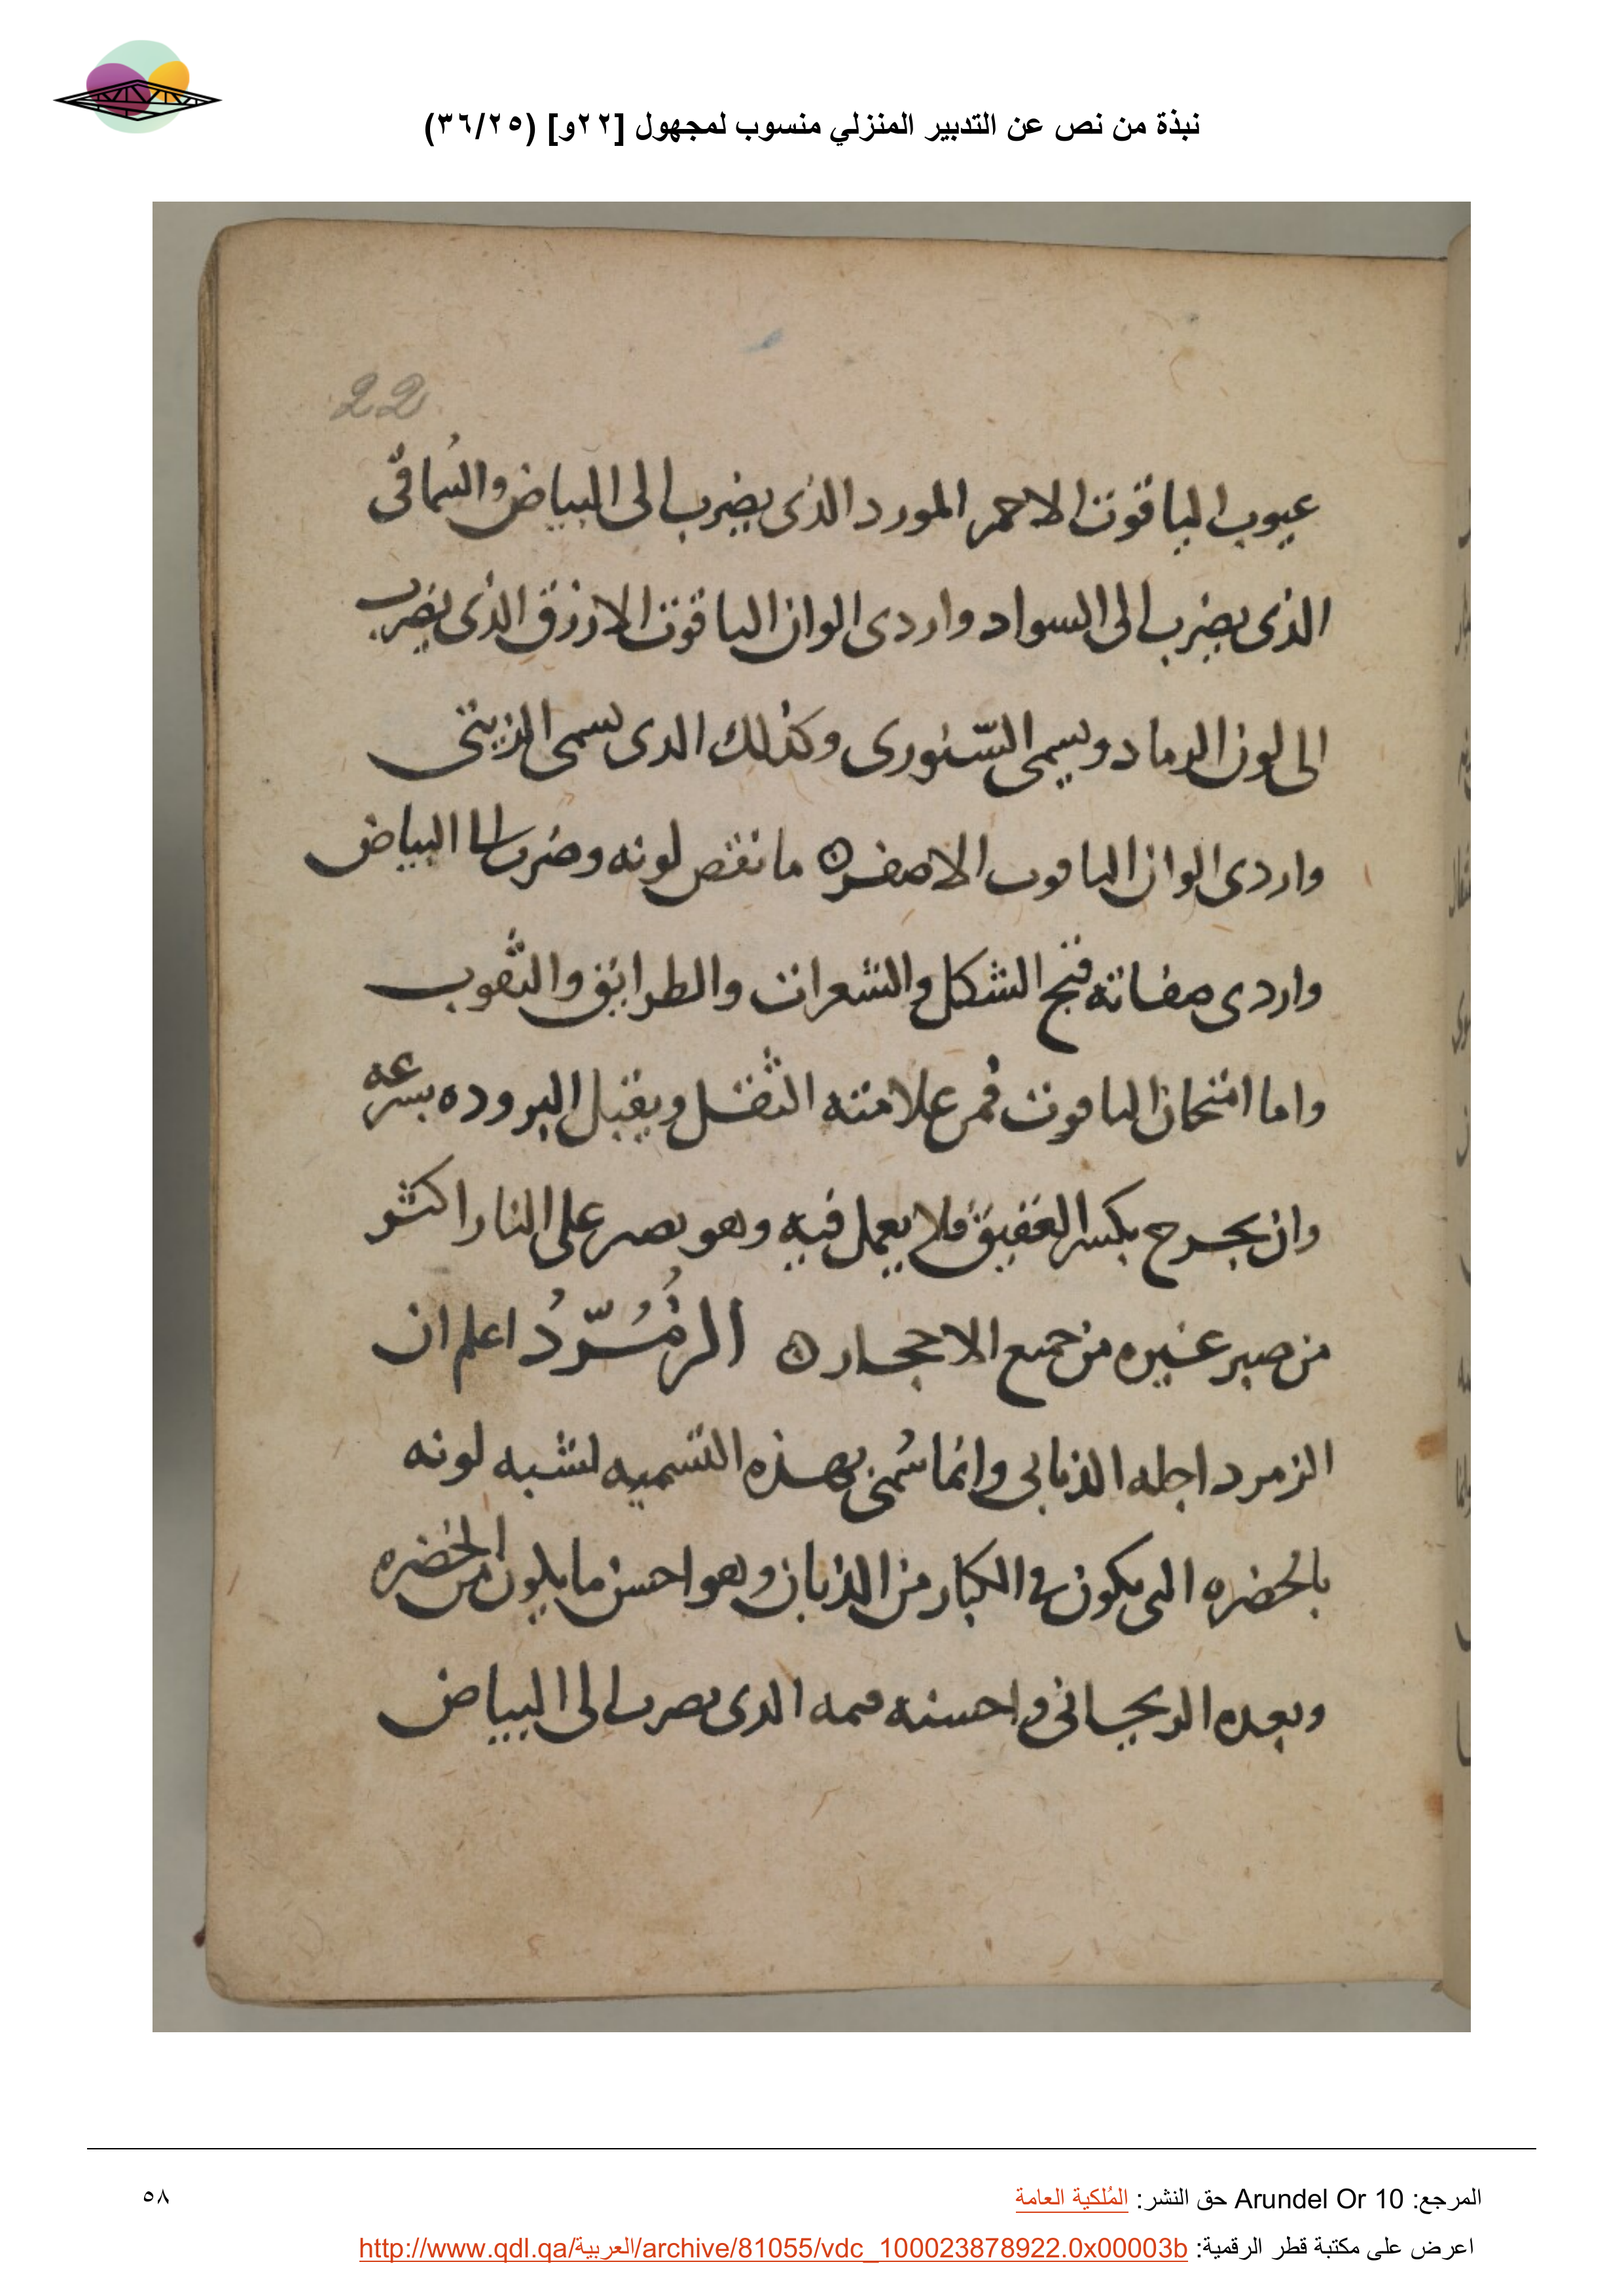 نبذة من نص عن التدبير المنزلي منسوب لمجهول [٢٢و] (٣٦/٢٥)
22
عيوب الياقوت الاحمر المورد الذى يضرب الى البياض والسُماقى
الذى يضرب الى السواد واردى الوان الياقوت الازرق الذى يضرب
الى لون الرماد ويسمى السّنورى وكذلك الذى يسمى الزيتى
واردى الوان الياقوت الاصفر ما نقص لونه وضرب الى البياض
واردى صفاته قبح الشكل والشعرات والطرايق والثقوب
واما امتحان الياقوت فمن علامته الثقل ويقبل البروده بسرعه
وان يجرح بكسر العقيق فلا يعمل فيه وهو يصبر على النار اكثر
من صبر غيره من جميع الاحجار الزُمُرّدُ اعلم ان
الزمرد اجله الذبابى وانما سُمى بهذه التسميه لشبه لونه
بالخضره التى تكون فى الكبار من الذبان وهو احسن ما يكون من الخضره
وبعده الريحانى واحسنه الذى يضرب الى البياض
المرجع: Arundel Or 10 حق النشر: المُلكية العامة
٥٨
اعرض على مكتبة قطر الرقمية: http://www.qdl.qa/العربية/archive/81055/vdc_100023878922.0x00003b